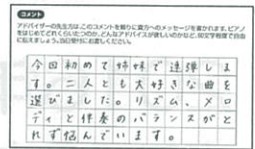 コメント
アドバイザーの先生方は、このコメントを頼りに貴方へのメッセージを書かれます。ピアノ
をはじめてどれくらいたつのか、どんなアドバイスが欲しいのかなど、80文字程度で自由
にお書きしましょう。当日受付にお渡しください。
今回初めて姉妹で連弾しま
す。二人とも大好きな曲を
選びました。リズム、メロ
ディと伴奏のバランスがと
れず悩んでいます。